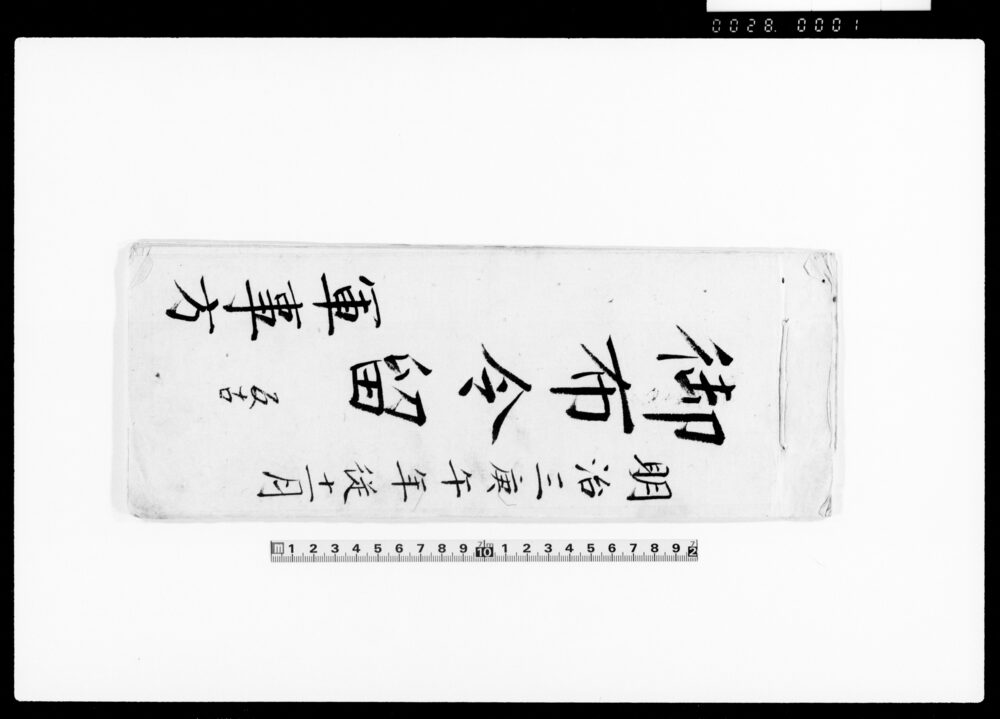 0028. 0001
明治三庚午年従十一月
御布令留
軍事方
1 2 3 4 5 6 7 8 9 10 1 2 3 4 5 6 7 8 9 2